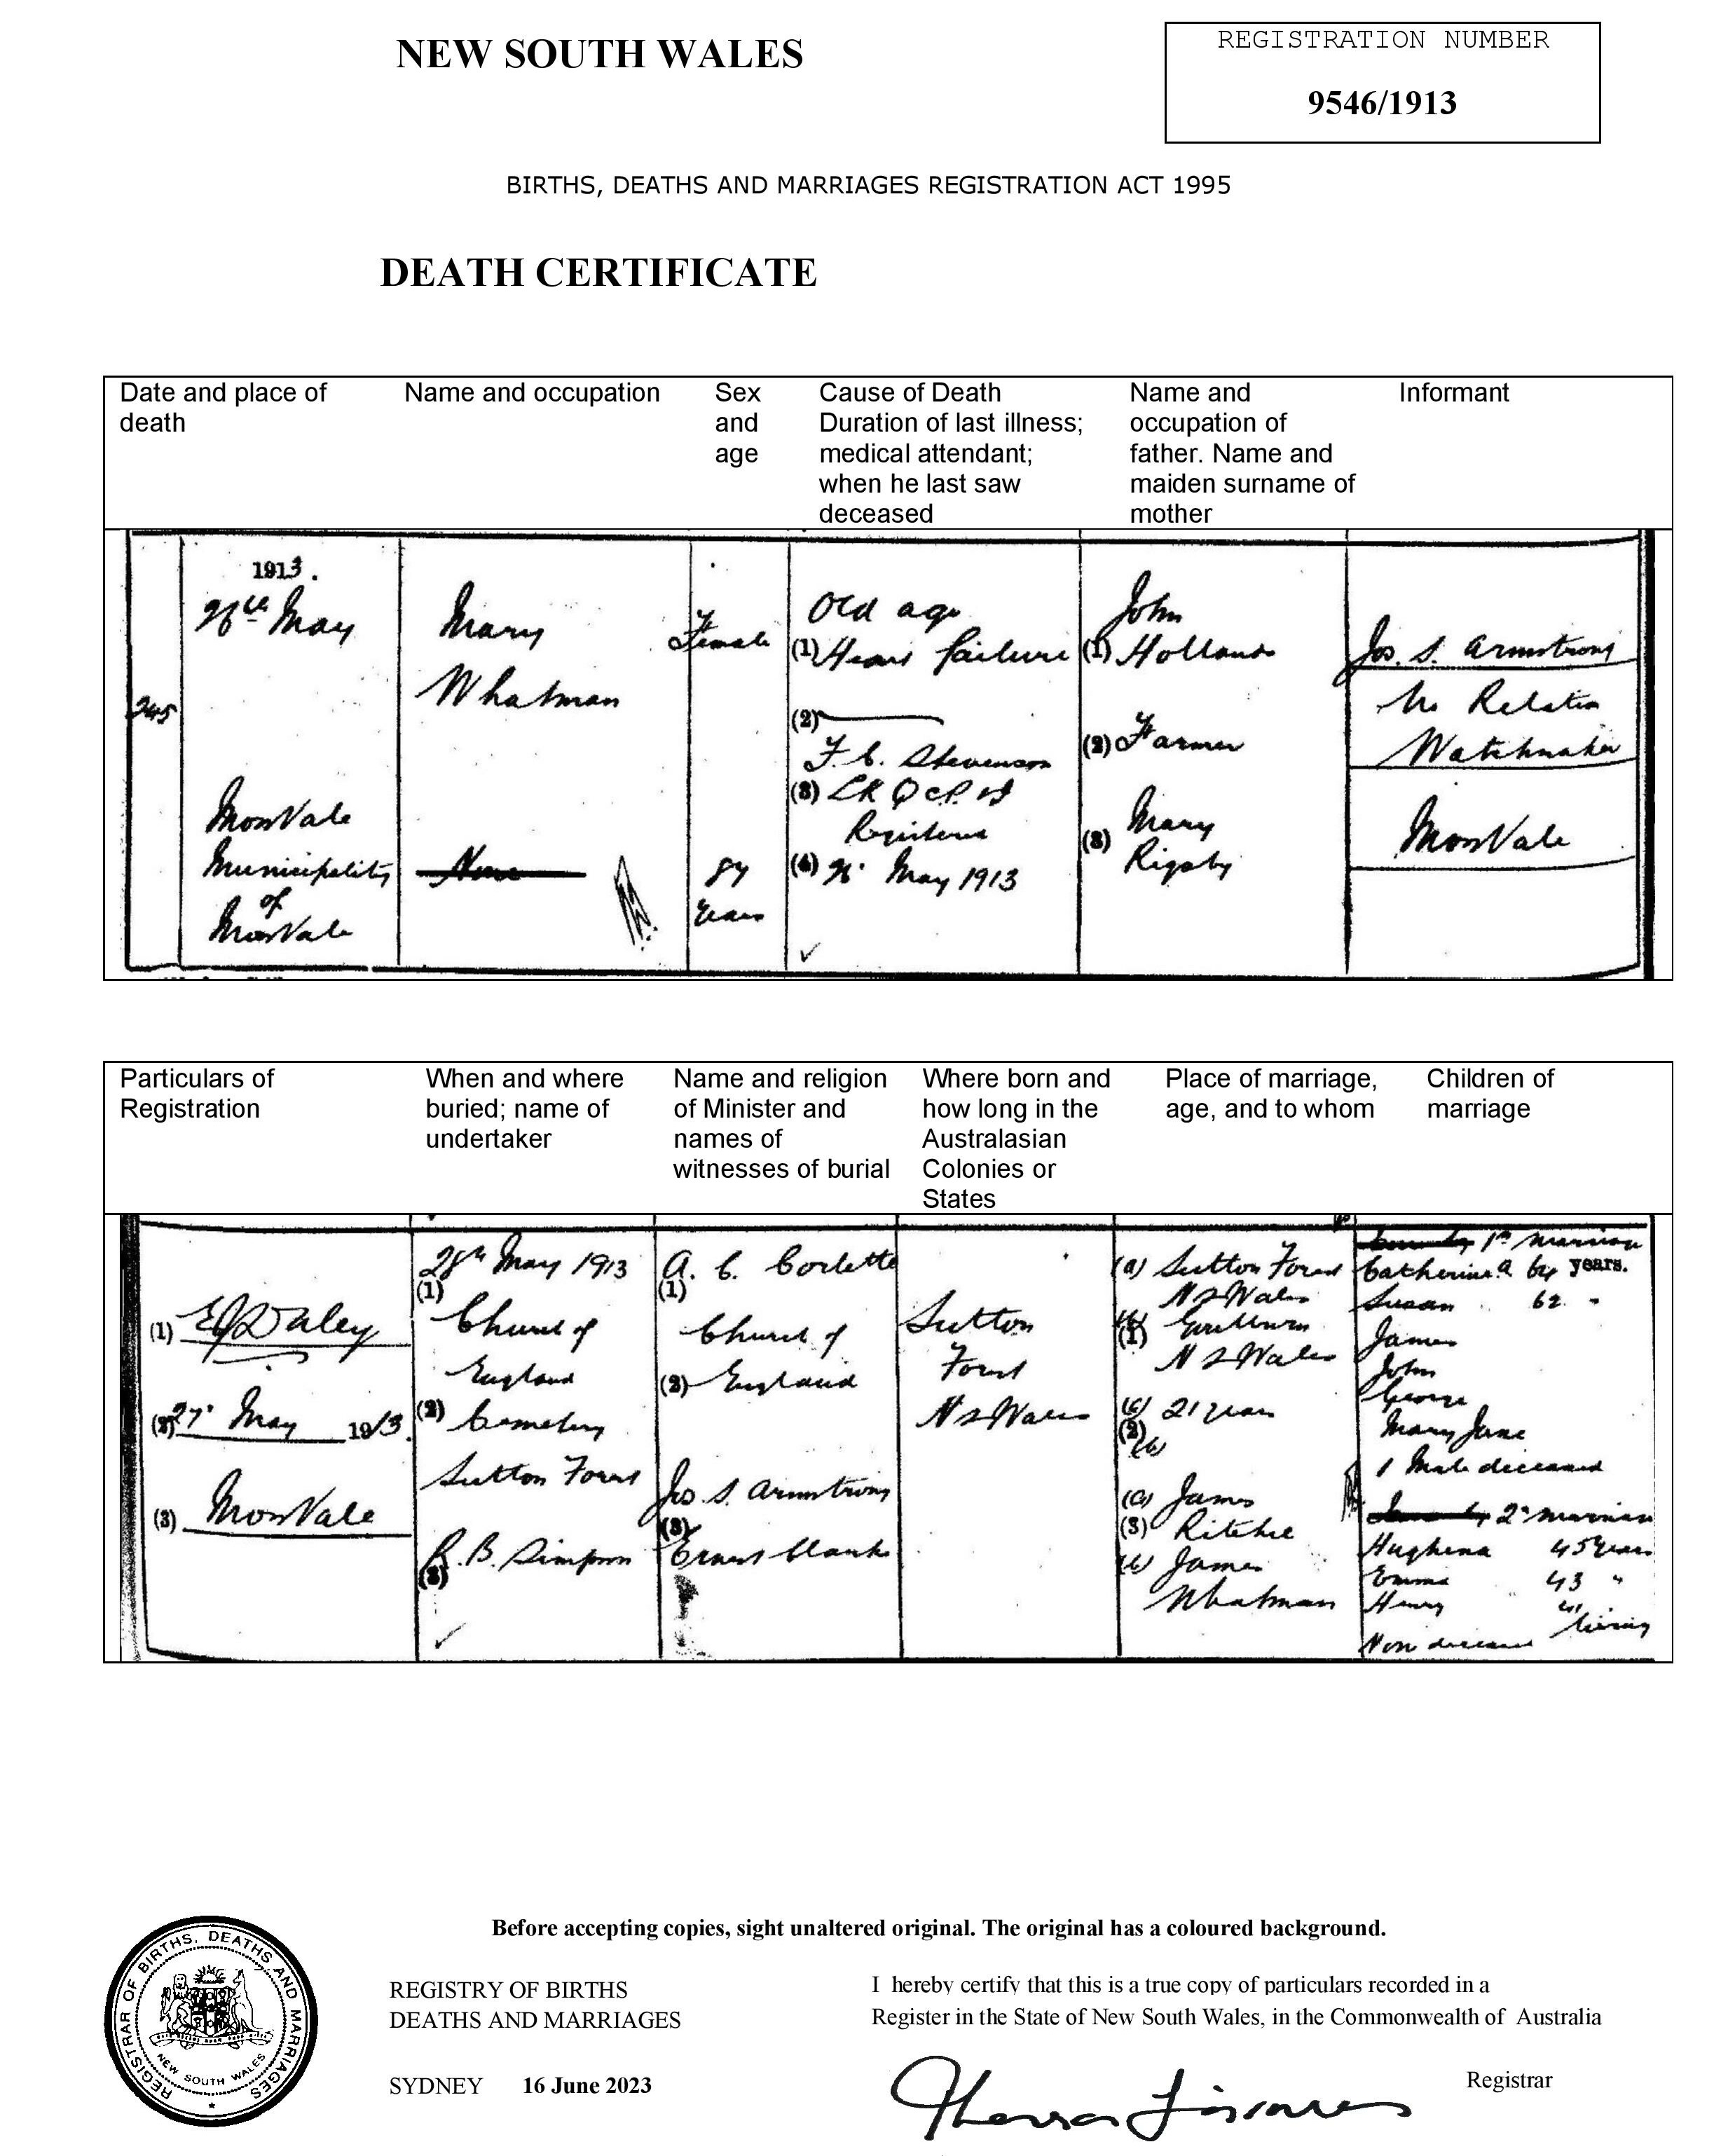 NEW SOUTH WALES
REGISTRATION NUMBER
9546/1913
BIRTHS, DEATHS AND MARRIAGES REGISTRATION ACT 1995
DEATH CERTIFICATE
Date and place of
death
Name and occupation
Sex
and
age
Cause of Death
Duration of last illness;
medical attendant;
when he last saw
deceased
Name and
occupation of
father. Name and
maiden surname of
mother
Informant
245
1913.
26th May
MossVale
Municipality
of
MossVale
Mary
Whatman
None
Female
84
Years
Old age
(1) Heart failure
(2)
F. C. Stevenson
(3) LK Q CP
Registered
(4) 26. May 1913
John
(1) Holland
(2) Farmer
Mary
(3) Rigsby
Jos. S. Armstrong
No Relation
Watchmaker
MossVale
Particulars of
Registration
When and where
buried; name of
undertaker
Name and religion
of Minister and
names of
witnesses of burial
Where born and
how long in the
Australasian
Colonies or
States
Place of marriage,
age, and to whom
Children of
marriage
(1) Daley
(2) 27. May 1913.
(3) MossVale
28th May 1913
(1)
Church of
England
(2) Cemetery
Sutton Forest
R. B. Simpson
(3)
A. C. Corlette
(1)
Church of
(2) England
Jos. S. Armstrong
(3)
Ernest Clarke
Sutton
Forest
N S Wales
(a) Sutton Forest
N S Wales
(b)
(1) Goulburn
N S Wales
(a) 21 years
(2)
(b)
(a) James
(3) Ritchie
(b) James
Whatman
1st marriage
Catherine A 64 years.
Susan 62 "
James
John
George
Mary Jane
1 Male deceased
2nd marriage
Hughena 45 years
Emma 43 "
Henry 41
living
None deceased
Before accepting copies, sight unaltered original. The original has a coloured background.
REGISTRAR OF BIRTHS, DEATHS AND MARRIAGES
NEW SOUTH WALES
REGISTRY OF BIRTHS
DEATHS AND MARRIAGES
SYDNEY 16 June 2023
I hereby certify that this is a true copy of particulars recorded in a
Register in the State of New South Wales, in the Commonwealth of Australia
Registrar